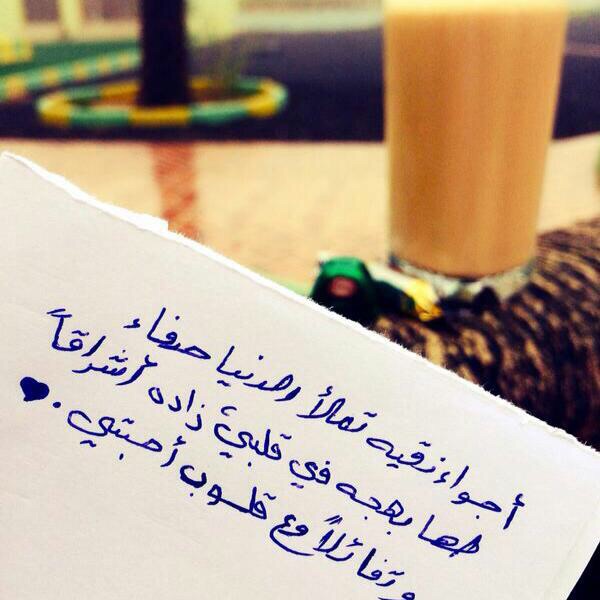 أجواء نقيه تملأ الدنيا صفاء
لها بهجه في قلبيَ زاده أشراقاً
وتفائلاً مع قلوب أحبتي .♥